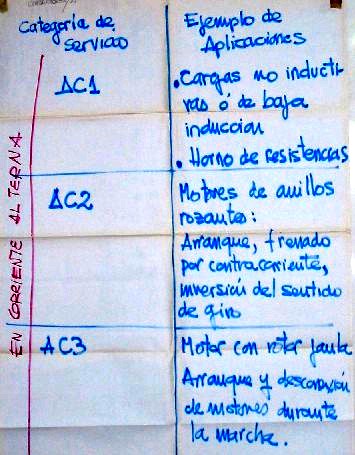 Categoria de
Servicio
Ejemplo de
Aplicaciones
EN CORRIENTE ALTERNA
AC1
• Cargas no inducti-
vas ó de baja
induccion
• Horno de resistencias
AC2
Motores de anillos
rozantes:
Arranque, frenado
por contracorriente,
inversión del sentido
de giro
AC3
Motor con rotor jaula
Arranque y desconexión
de motores durante
la marcha.